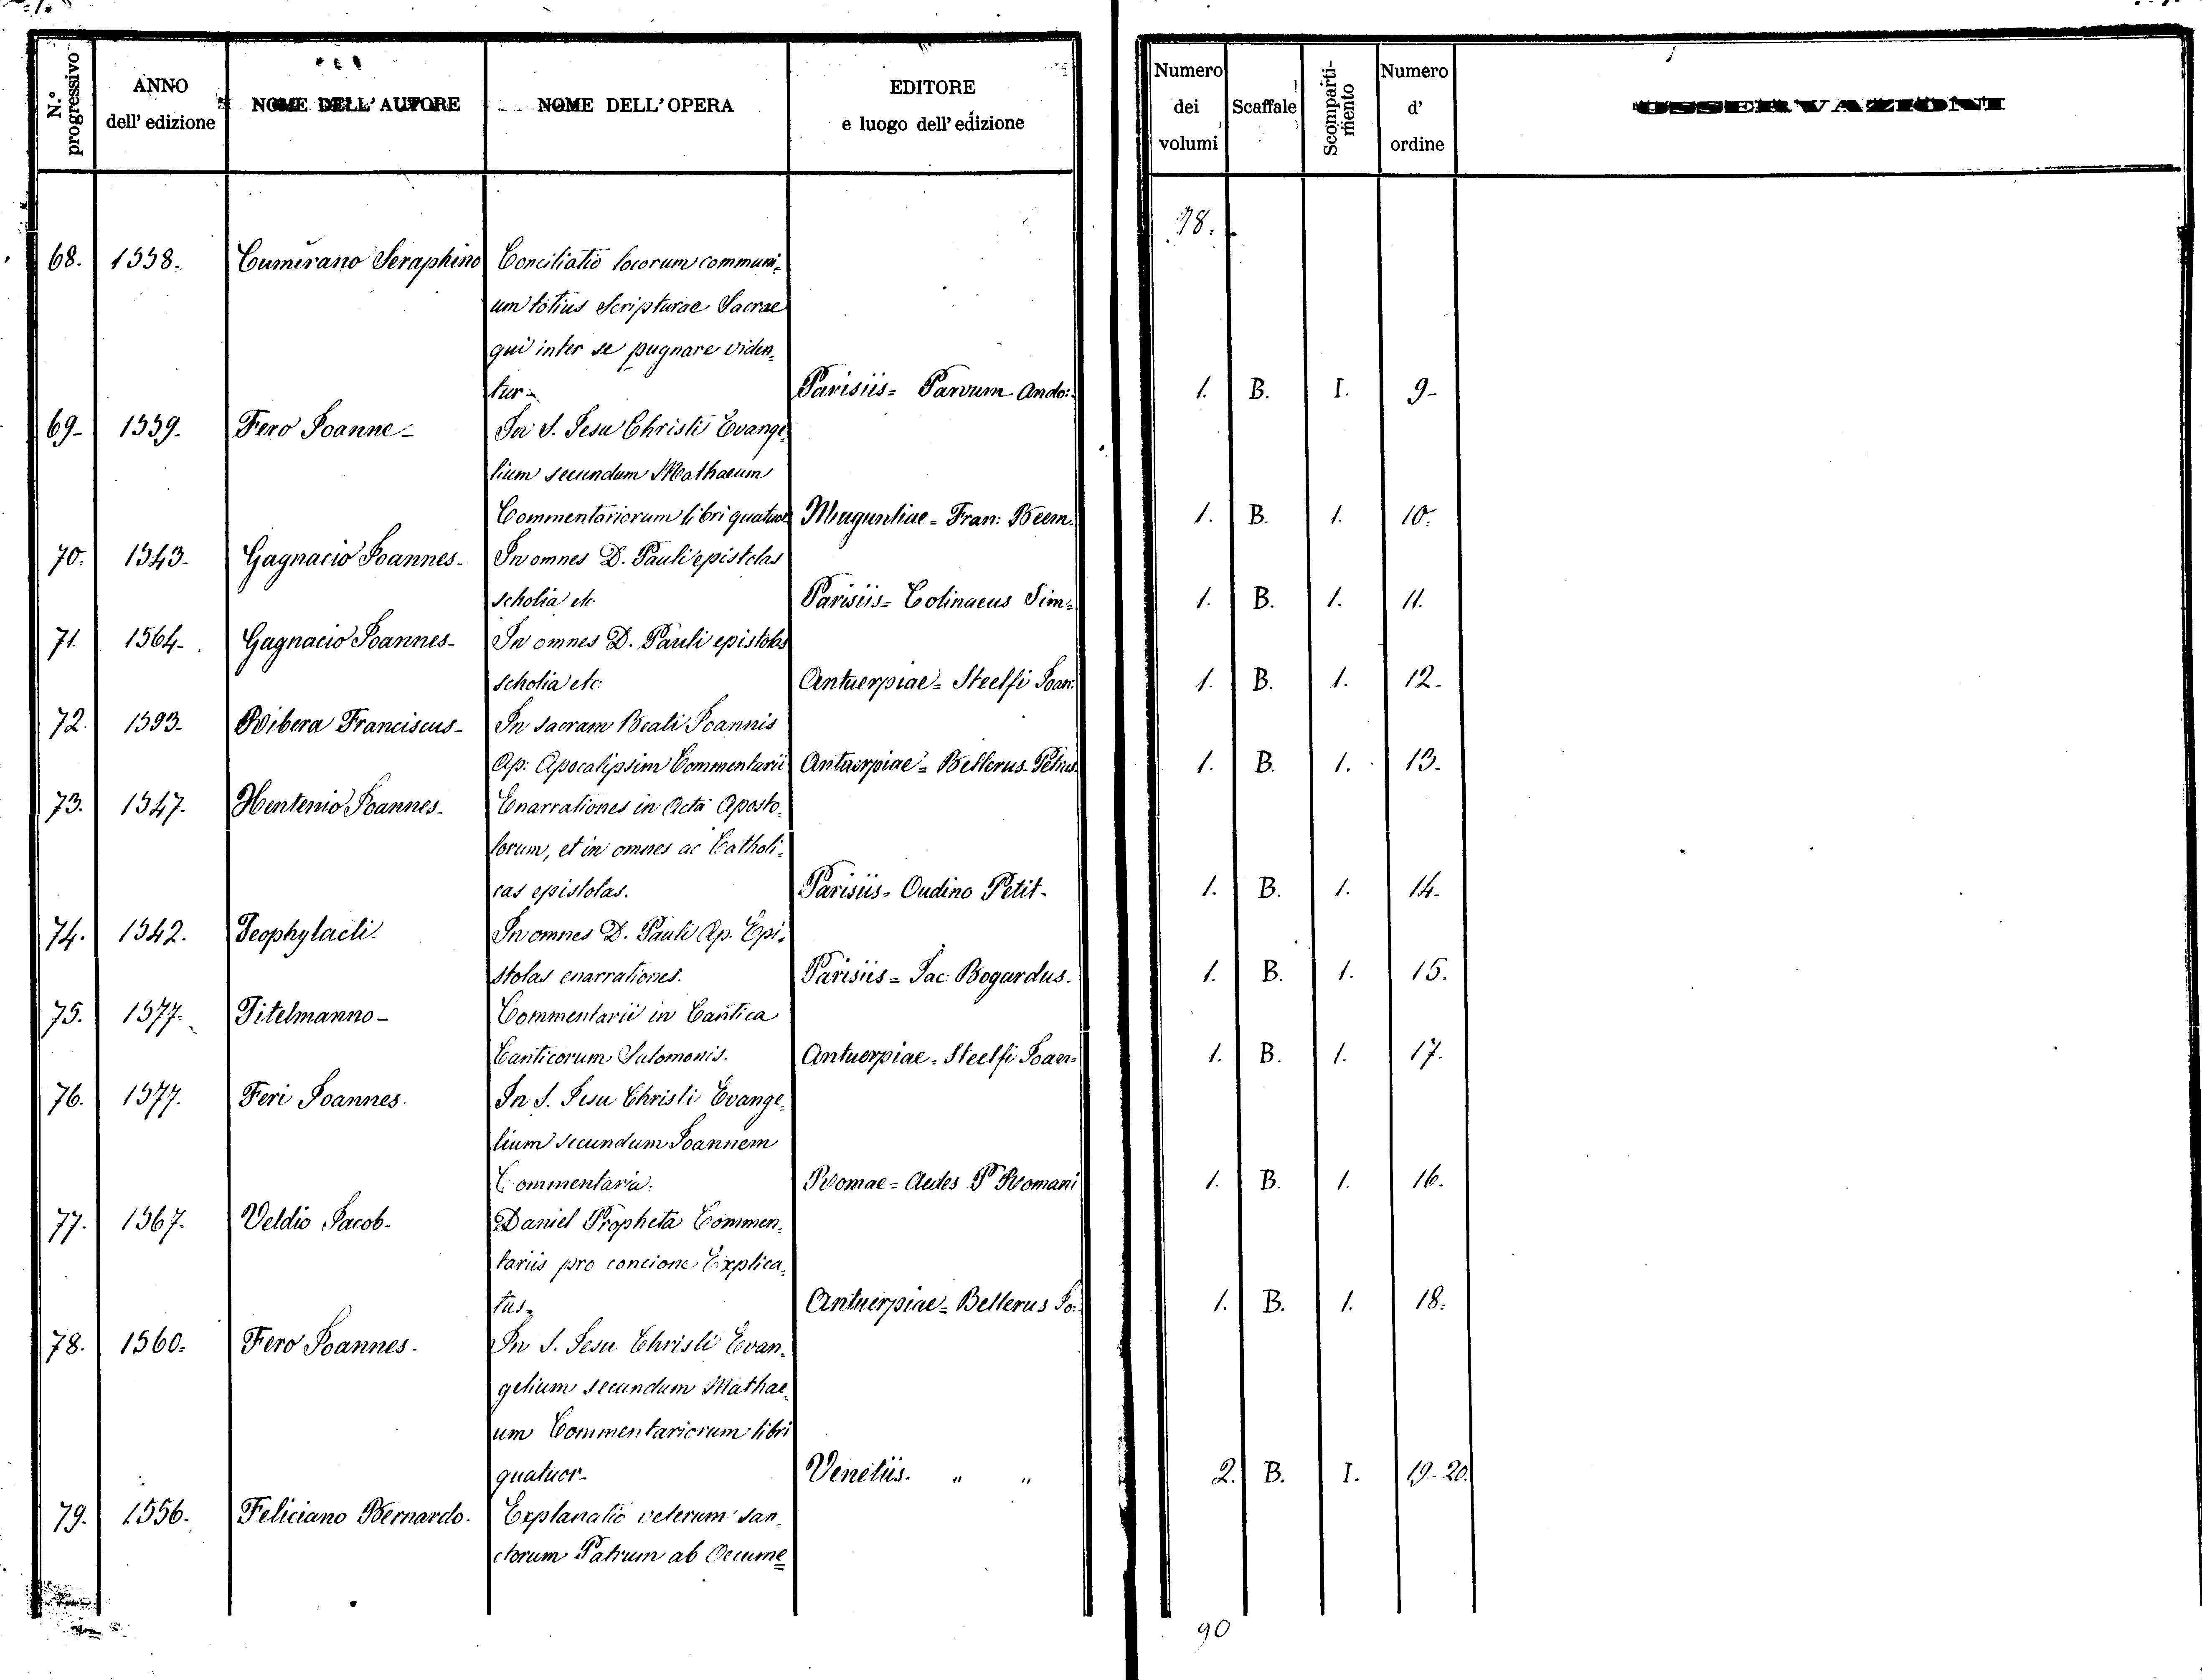 N.º progressivo
ANNO dell' edizione
NOME DELL' AUTORE
NOME DELL' OPERA
EDITORE e luogo dell' edizione
Numero dei volumi
Scaffale
Scomparti-mento
Numero d' ordine
OSSERVAZIONI
78.
68. 1558. Cumirano Seraphino Conciliatio locorum communi=
um totius Scripturae Sacrae
qui inter se pugnare viden=
tur= Parisiis= Parvum Ando: 1. B. I. 9-
69- 1559. Fero Joanne- In S. Jesu Christi Evange=
lium secundum Mathaeum
Commentariorum libri quatuor Muguntiae= Fran: Beem. 1. B. 1. 10.
70. 1543. Gagnacio Joannes- In omnes D. Pauli epistolas
scholia etc. Parisiis= Colinaeus Sim= 1. B. 1. 11.
71. 1564. Gagnacio Joannes- In omnes D. Pauli epistolas
scholia etc: Antuerpiae= Steelfi Joan: 1. B. 1. 12.
72. 1593. Ribera Franciscus- In sacram Beati Joannis
Ap: Apocalipsim Commentarii Antuerpiae= Bellerus Petrus 1. B. 1. 13.
73. 1547. Hentenio Joannes. Enarrationes in Acta Aposto=
lorum, et in omnes ac Catholi=
cas epistolas. Parisiis- Oudino Petit. 1. B. 1. 14.
74. 1542. Teophylacti. In omnes D. Pauli Ap. Epi=
stolas enarrationes. Parisiis= Jac: Bogardus. 1. B. 1. 15.
75. 1577. Titelmanno- Commentarii in Cantica
Canticorum Salomonis. Antuerpiae= Steelfi Joan= 1. B. 1. 17.
76. 1577. Feri Joannes. In S. Jesu Christi Evange=
lium secundum Joannem
Commentaria. Romae= Aedes P. Romani 1. B. 1. 16.
77. 1567. Veldio Jacob- Daniel Propheta Commen=
tariis pro concione Explica=
tus= Antuerpiae= Bellerus Jo: 1. B. 1. 18.
78. 1560. Fero Joannes. In S. Jesu Christi Evan=
gelium secundum Mathae=
um Commentariorum libri
quatuor- Venetiis. " " 2. B. I. 19-20.
79. 1556. Feliciano Bernardo. Explanatio veterum san=
ctorum Patrum ab Oecume=
90